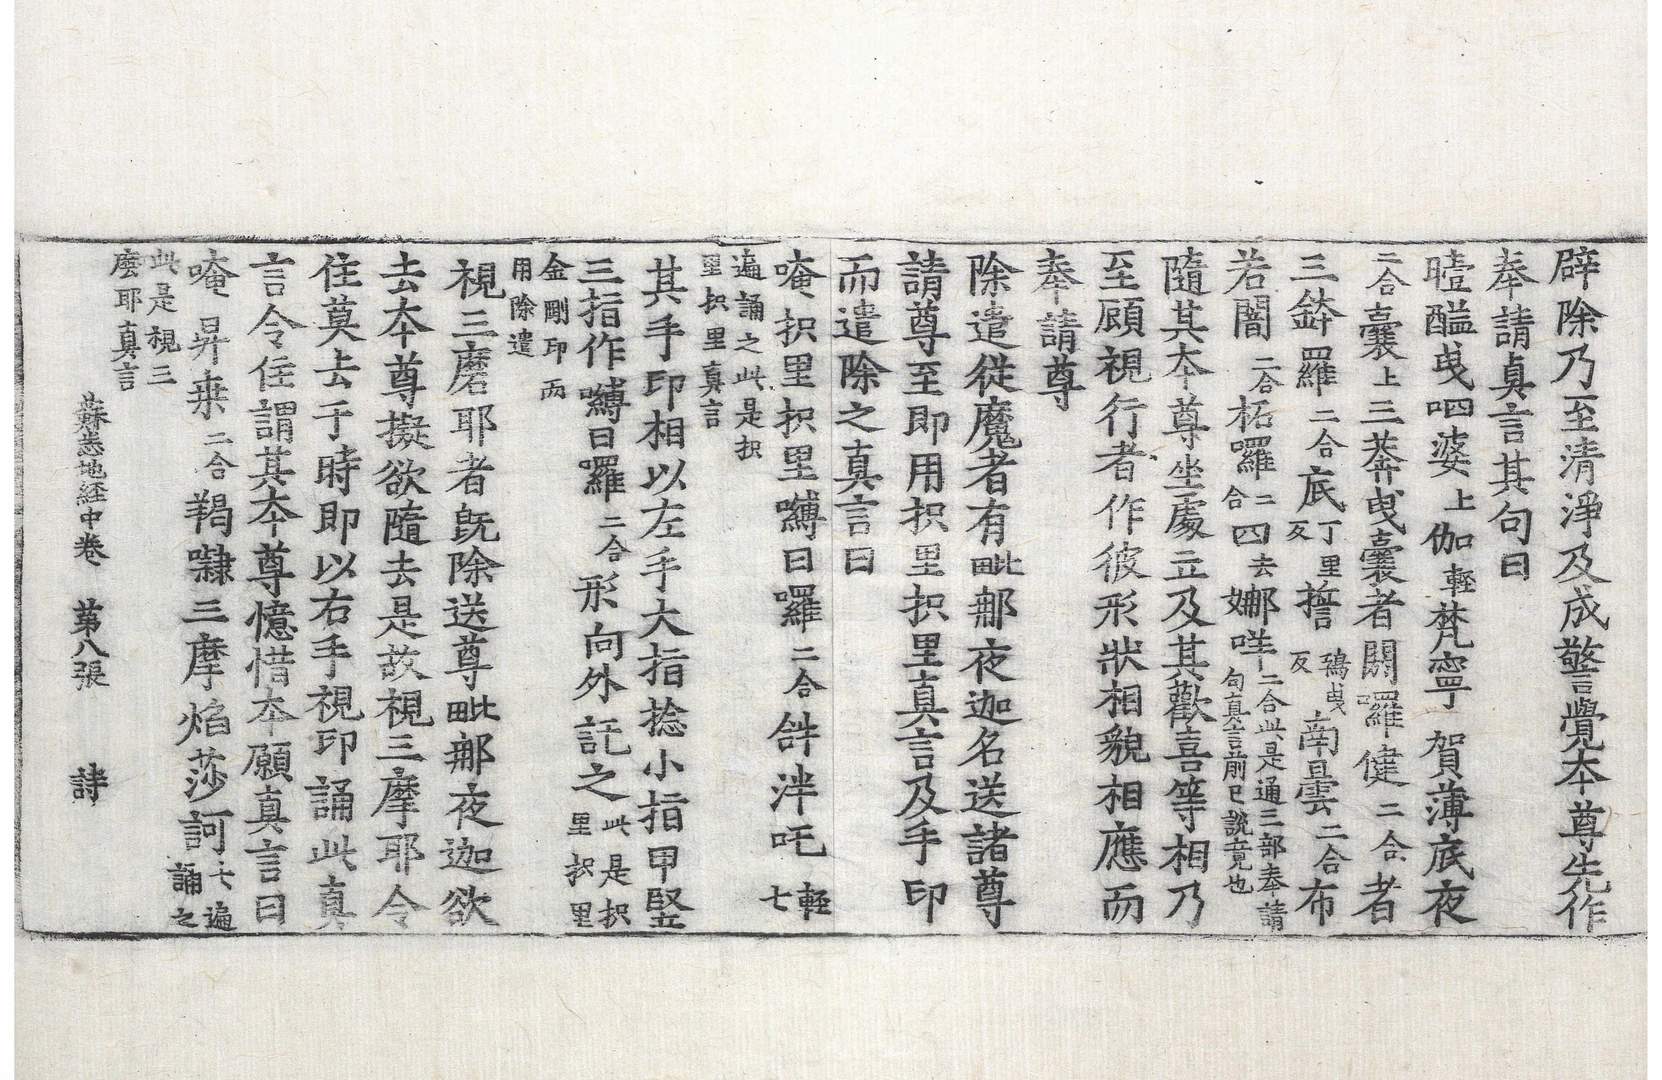 辟除乃至清淨及成警覺本尊先作
奉請真言其句曰
曀醯曳呬婆上伽輕梵寧賀薄底夜
二合囊上三莾曳囊者闘囉健二合者
三鉢羅二合底丁里反誓鵶曳反南曇二合布
若闇二合柘囉二合四去娜咩二合此是通三部奉請句真言前已說竟也
隨其本尊坐處立及其歡喜等相乃
至顧視行者作彼形狀相貌相應而
奉請尊
除遣從魔者有毗那夜迦名送諸尊
請尊至即用枳里枳里真言及手印
而遣除之真言曰
唵枳里枳里嚩日囉二合𤙖泮吒輕七
遍誦之此是枳里枳里真言
其手印相以左手大指捻小指甲竪
三指作嚩日囉二合形向外託之此是枳里枳里
金剛印而用除遣
視三磨耶者旣除送尊毗那夜迦欲
去本尊擬欲隨去是故視三摩耶令
住莫去于時即以右手視印誦此真
言令住謂其本尊憶惜本願真言曰
唵昇桒二合羯囇三摩焰莎訶七遍誦之
此是視三麼耶真言
蘇悉地経中卷 苐八張 詩